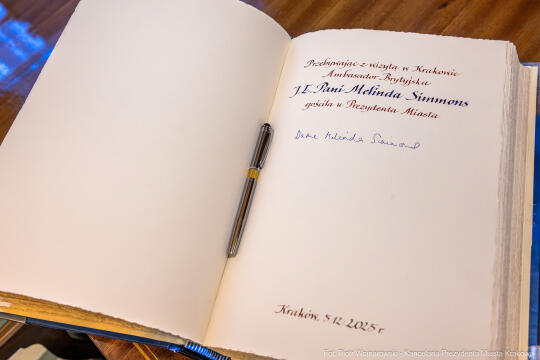 Przebywając z wizytą w Krakowie
Ambasador Brytyjska
J.E. Pani Melinda Simmons
gościła u Prezydenta Miasta
Dame Melinda Simmons
Kraków, 5.12.2025 r.
Fot. Piotr Wojnarowski - Kancelaria Prezydenta Miasta Krakowa